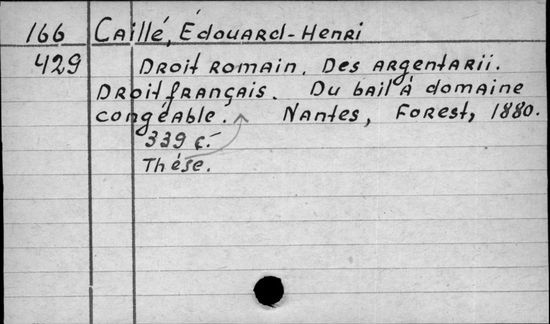 166 Caillé, Édouard-Henri
429 Droit romain. Des argentarii.
Droit français. Du bail à domaine
congéable. Nantes, Forest, 1880.
339 с.
Thése.